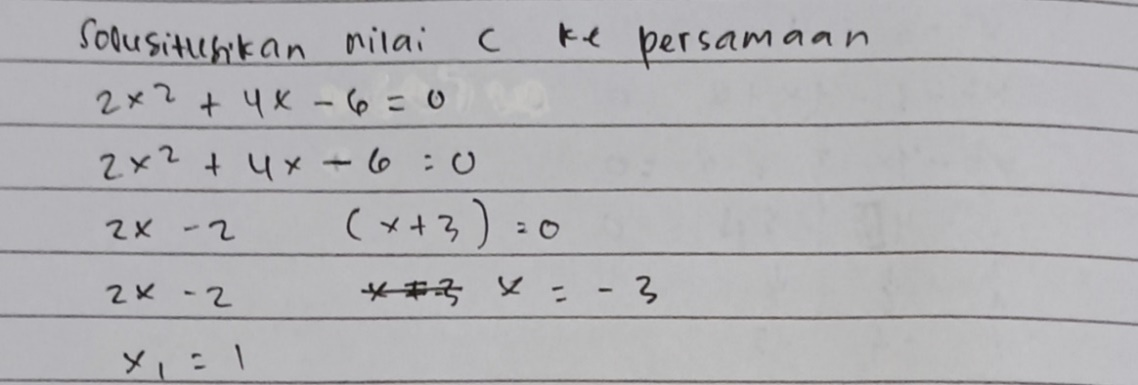 Solusitusikan nilai c ke persamaan
2x² + 4x - 6 = 0
2x² + 4x - 6 = 0
2x - 2 (x+3) = 0
2x - 2 x = -3
x₁ = 1